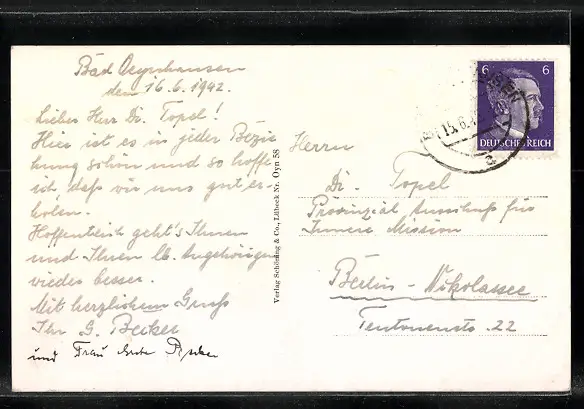 Bad Oeynhausen
den 16.6.1942.
Lieber Herr Dr. Topel!
Hier ist es in jeder Bezie
hung schön und so hoffe
ich, daß wir uns gut er-
holen.
Hoffentlich geht's Ihnen
und Ihren lb. Angehörigen
wieder besser.
Mit herzlichem Gruß
Ihr G. Becker
und Frau
Verlag Schöning & Co., Lübeck Nr. Oyn 58
6 6
DEUTSCHES REICH
Herrn
Dr. Topel
Provinzial Ausschuß für
Innere Mission
Berlin-Nikolassee
Teutonenstr. 22